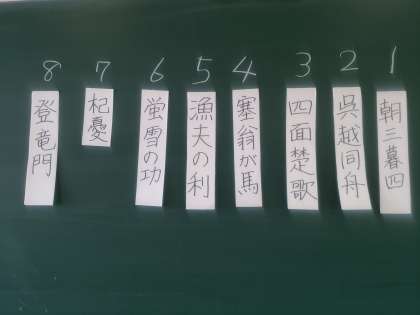 1 朝三暮四
2 呉越同舟
3 四面楚歌
4 塞翁が馬
5 漁夫の利
6 蛍雪の功
7 杞憂
8 登竜門